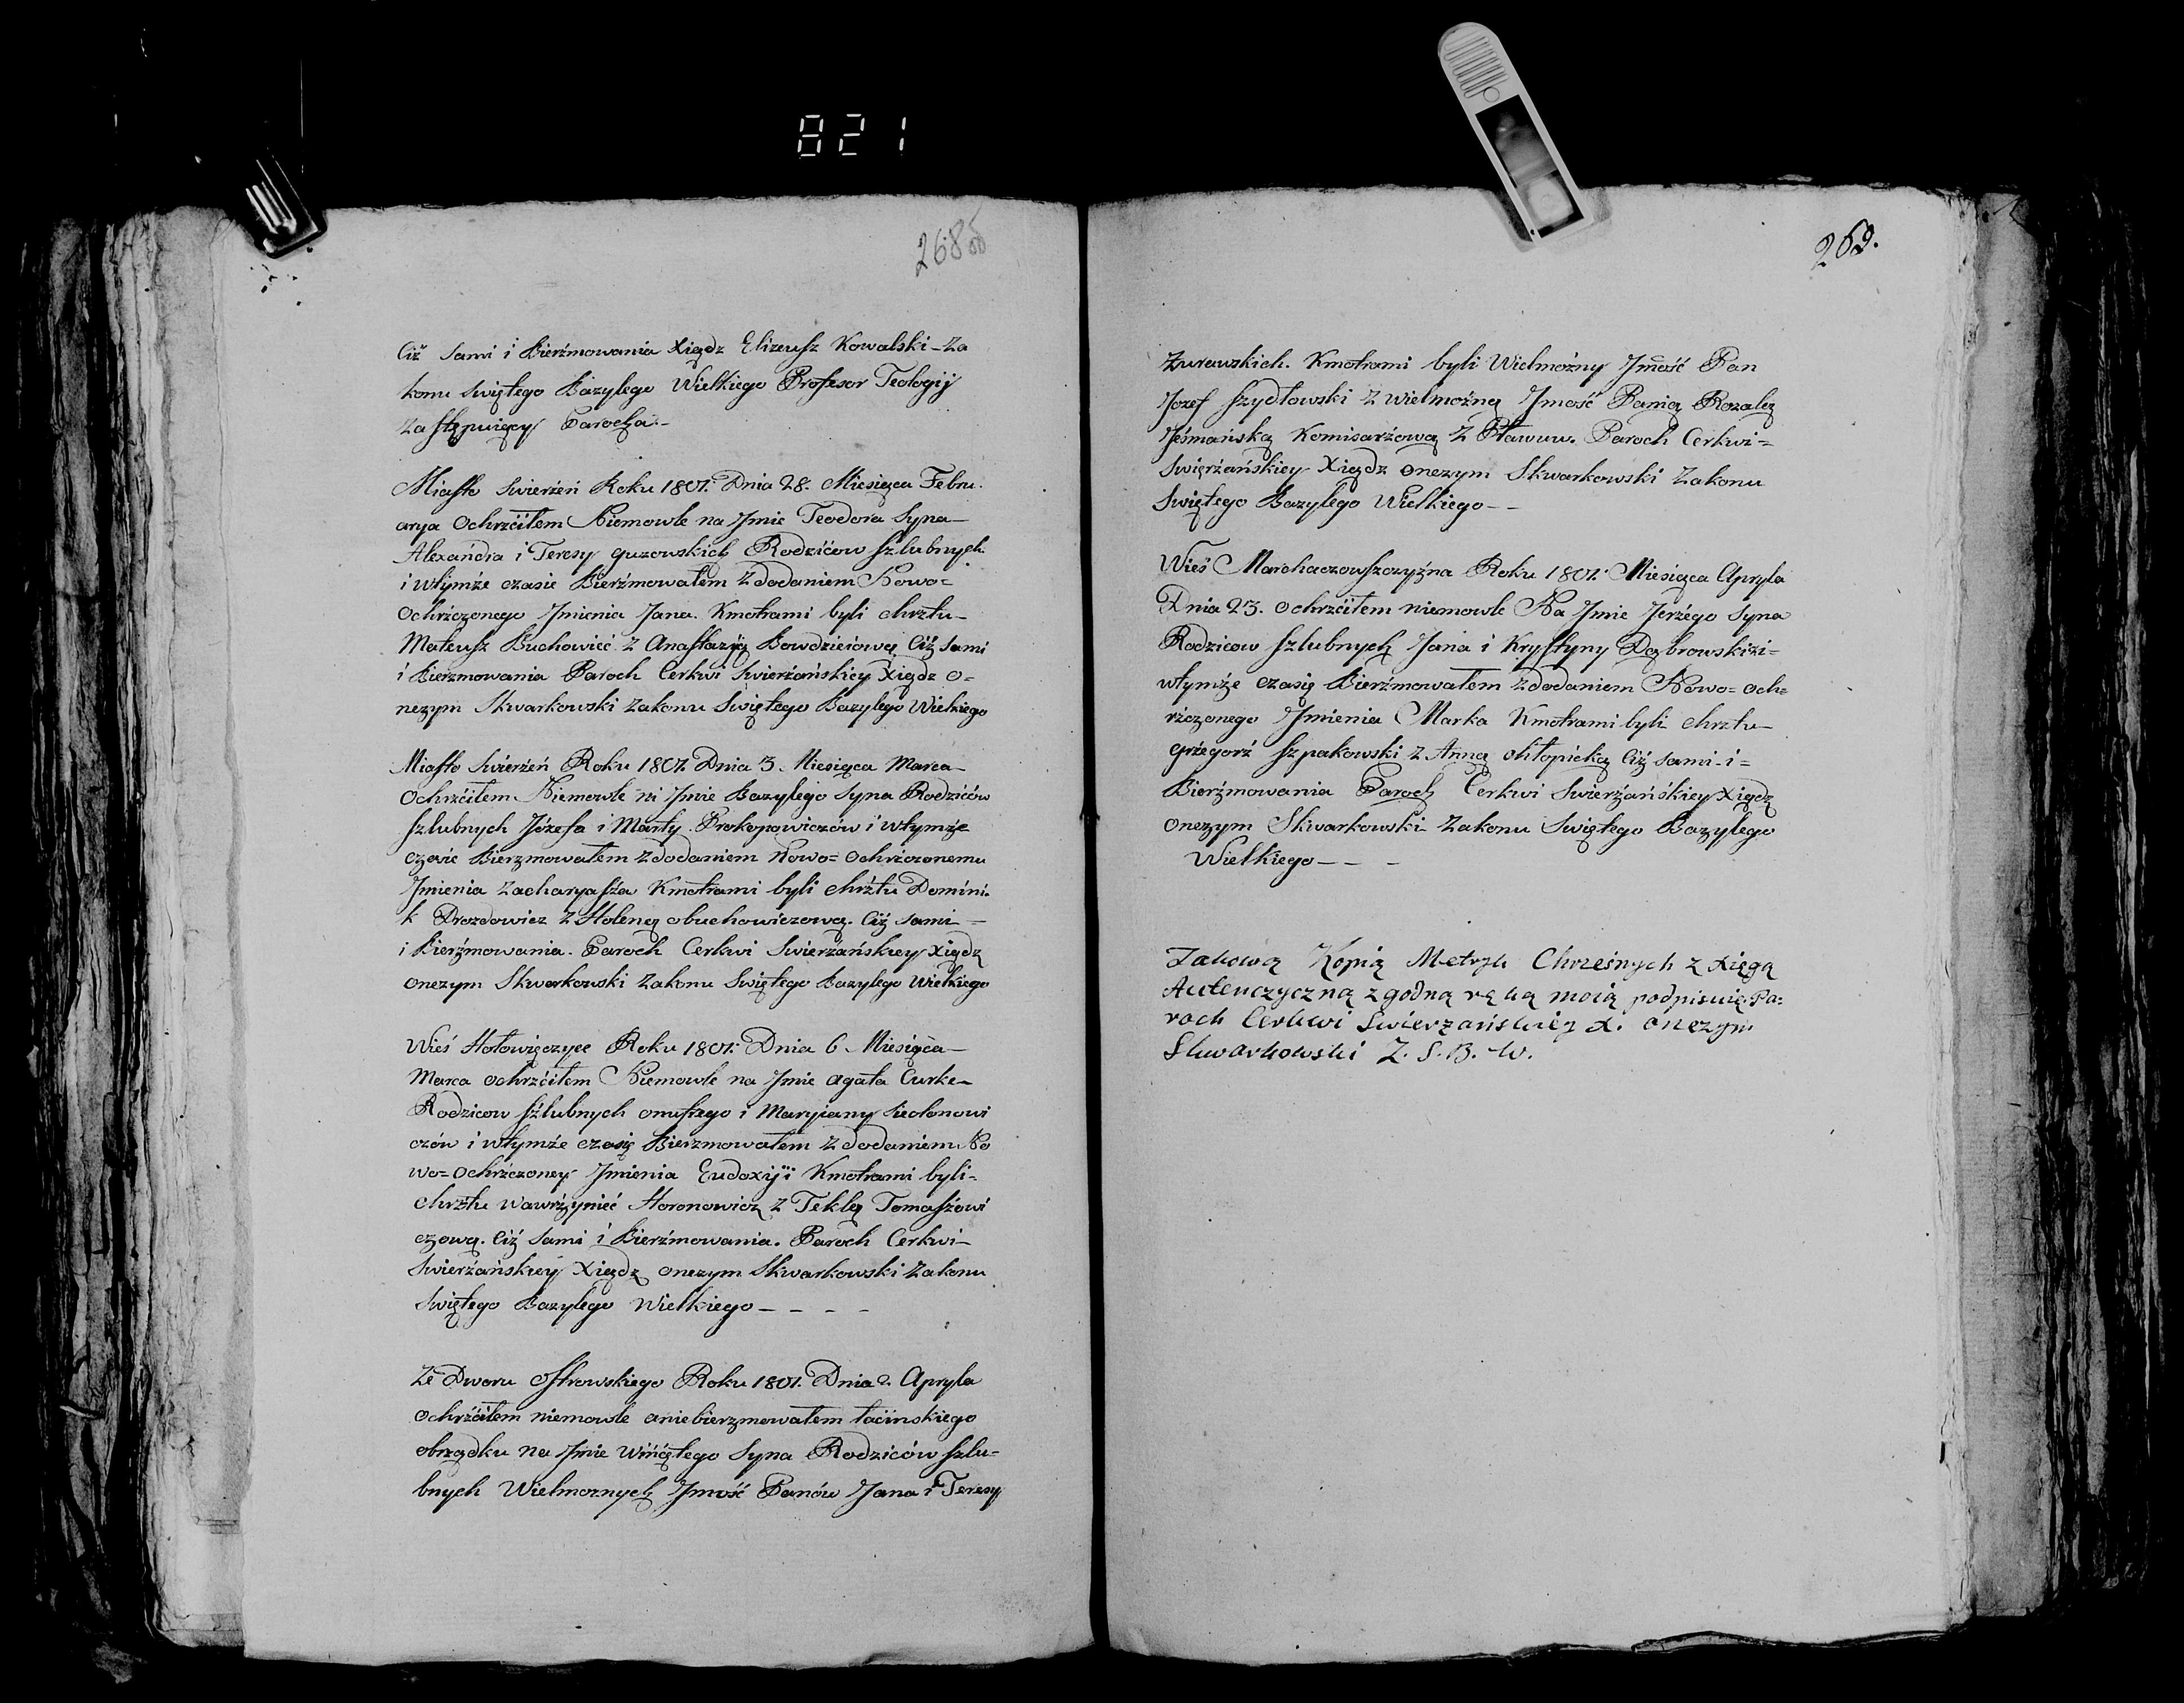 821
268 об
Ciż sami i Bierźmowania Xiądz Elizeusz Kowalski _ Za
konu Swiętego Bazylego Wielkiego Profesor Teologij
Zastępuiący Parocha._
Miasto Swierżeń Roku 1801. Dnia 28. Miesiąca Febru.
arya Ochrźciłem Niemowle na Jmie Teodora Syna _
Alexandra i Teresy guzowskich Rodzićow szlubnych
i wtymże czasie Bierźmowałem Z dodaniem Nowo=
Ochrźczonego Jmienia Jana. Kmotrami byli chrztu _
Mateusz Buchowieć z Anastazyą Bowdzieiową Ciż sami
i Bierzmowania Paroch Cerkwi Swierżańskiey Xiądz O=
nezym Skwarkowski Zakonu Swiętego Bazylego Wielkiego
Miasto Swierżeń Roku 1801 Dnia 3. Miesiąca Marca _
Ochrźciłem Niemowle ni Jmie Bazylego Syna Rodzićów
szlubnych Józefa i Marty Prokopowiczów i wtymże
czasie Bierzmowałem Z dodaniem Nowo= Ochrźczonemu
Jmienia Zacharyasza Kmotrami byli chrźtu Domini.
k Drozdowicz z Holeną obuchowiczową. Ciż sami _
i Bierźmowania. Paroch Cerkwi Swierżańskiey Xiądz
onezym Skwarkowski Zakonu Swiętego Bazylego Wielkiego
Wieś Hołowięczyce Roku 1801. Dnia 6. Miesiąca _
Marca ochrźciłem Niemowle na Jmie agata Curke _
Rodzicow szlubnych onufrego i Maryianny
czów i wtymże czasię Bierzmowałem Z dodaniem No
wo= Ochrźczoney Jmienia Eudoxyi Kmotrami byli _
chrztu Wawrźynieć Horonowicz z Teklą Tomaszewi
czową. Ciż sami i Bierźmowania. Paroch Cerkwi _
Swierżańskiey Xiądz onezym Skwarkowski Zakonu
Swiętego Bazylego Wielkiego _ _ _ _
Ze Dworu Ostrowskiego Roku 1801. Dnia 2. Apryla
ochrźciłem niemowle aniebierzmowałem łacinskiego
obrządku na Jmie Wińcętego Syna Rodziców szlu=
bnych Wielmoznych Jmość Panów Jana i Teresy
269.
Zurawskich. Kmotrami byli Wielmożny Jmość Pan
Jozef Szydłowski z Wielmożną Jmość Panią Rozalą
Jeśmańską Komisarźową z Paroch Cerkwi =
Swierżańskiey Xiądz Onezym Skwarkowski Zakonu
Swiętego Bazylego Wielkiego _ _
Wieś Marchaczowszczyzna Roku 1801. Miesiąca Apryla
Dnia 23. ochrźciłem niemowle Na Jmie Jerżego Syna
Rodzicow szlubnych Jana i Krystyny Dąbrowski
wtymże czasię Bierźmowałem Z dodaniem Nowo= och=
rźczonego Jmienia Marka Kmotrami byli chrztu _
grźegorż Szpakowski z Anną chłopicką Ciż sami _ i =
Bierźmowania Paroch Cerkwi Swierżańskiey Xiądz
onezym Skwarkowski Zakonu Swiętego Bazylego
Wielkiego _ _ _
Takową Kopią Metryk Chrzesnych z xięgą
Autenczyczną zgodną ręką moią podpisuię Pa=
roch Cerkwi Swierzańskiey X. onezym
Skwarkowski Z. S. B. W.